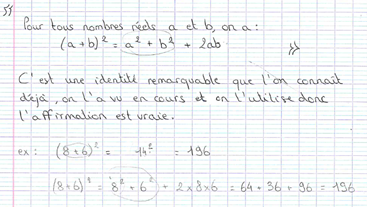 "
Pour tous nombres réels a et b, on a :
(a + b)² = a² + b² + 2ab "
C'est une identité remarquable que l'on connait
déjà, on l'a vu en cours et on l'utilise donc
l'affirmation est vraie.
ex : (8+6)² = 14² = 196
(8+6)² = 8² + 6² + 2 x 8 x 6 = 64 + 36 + 96 = 196